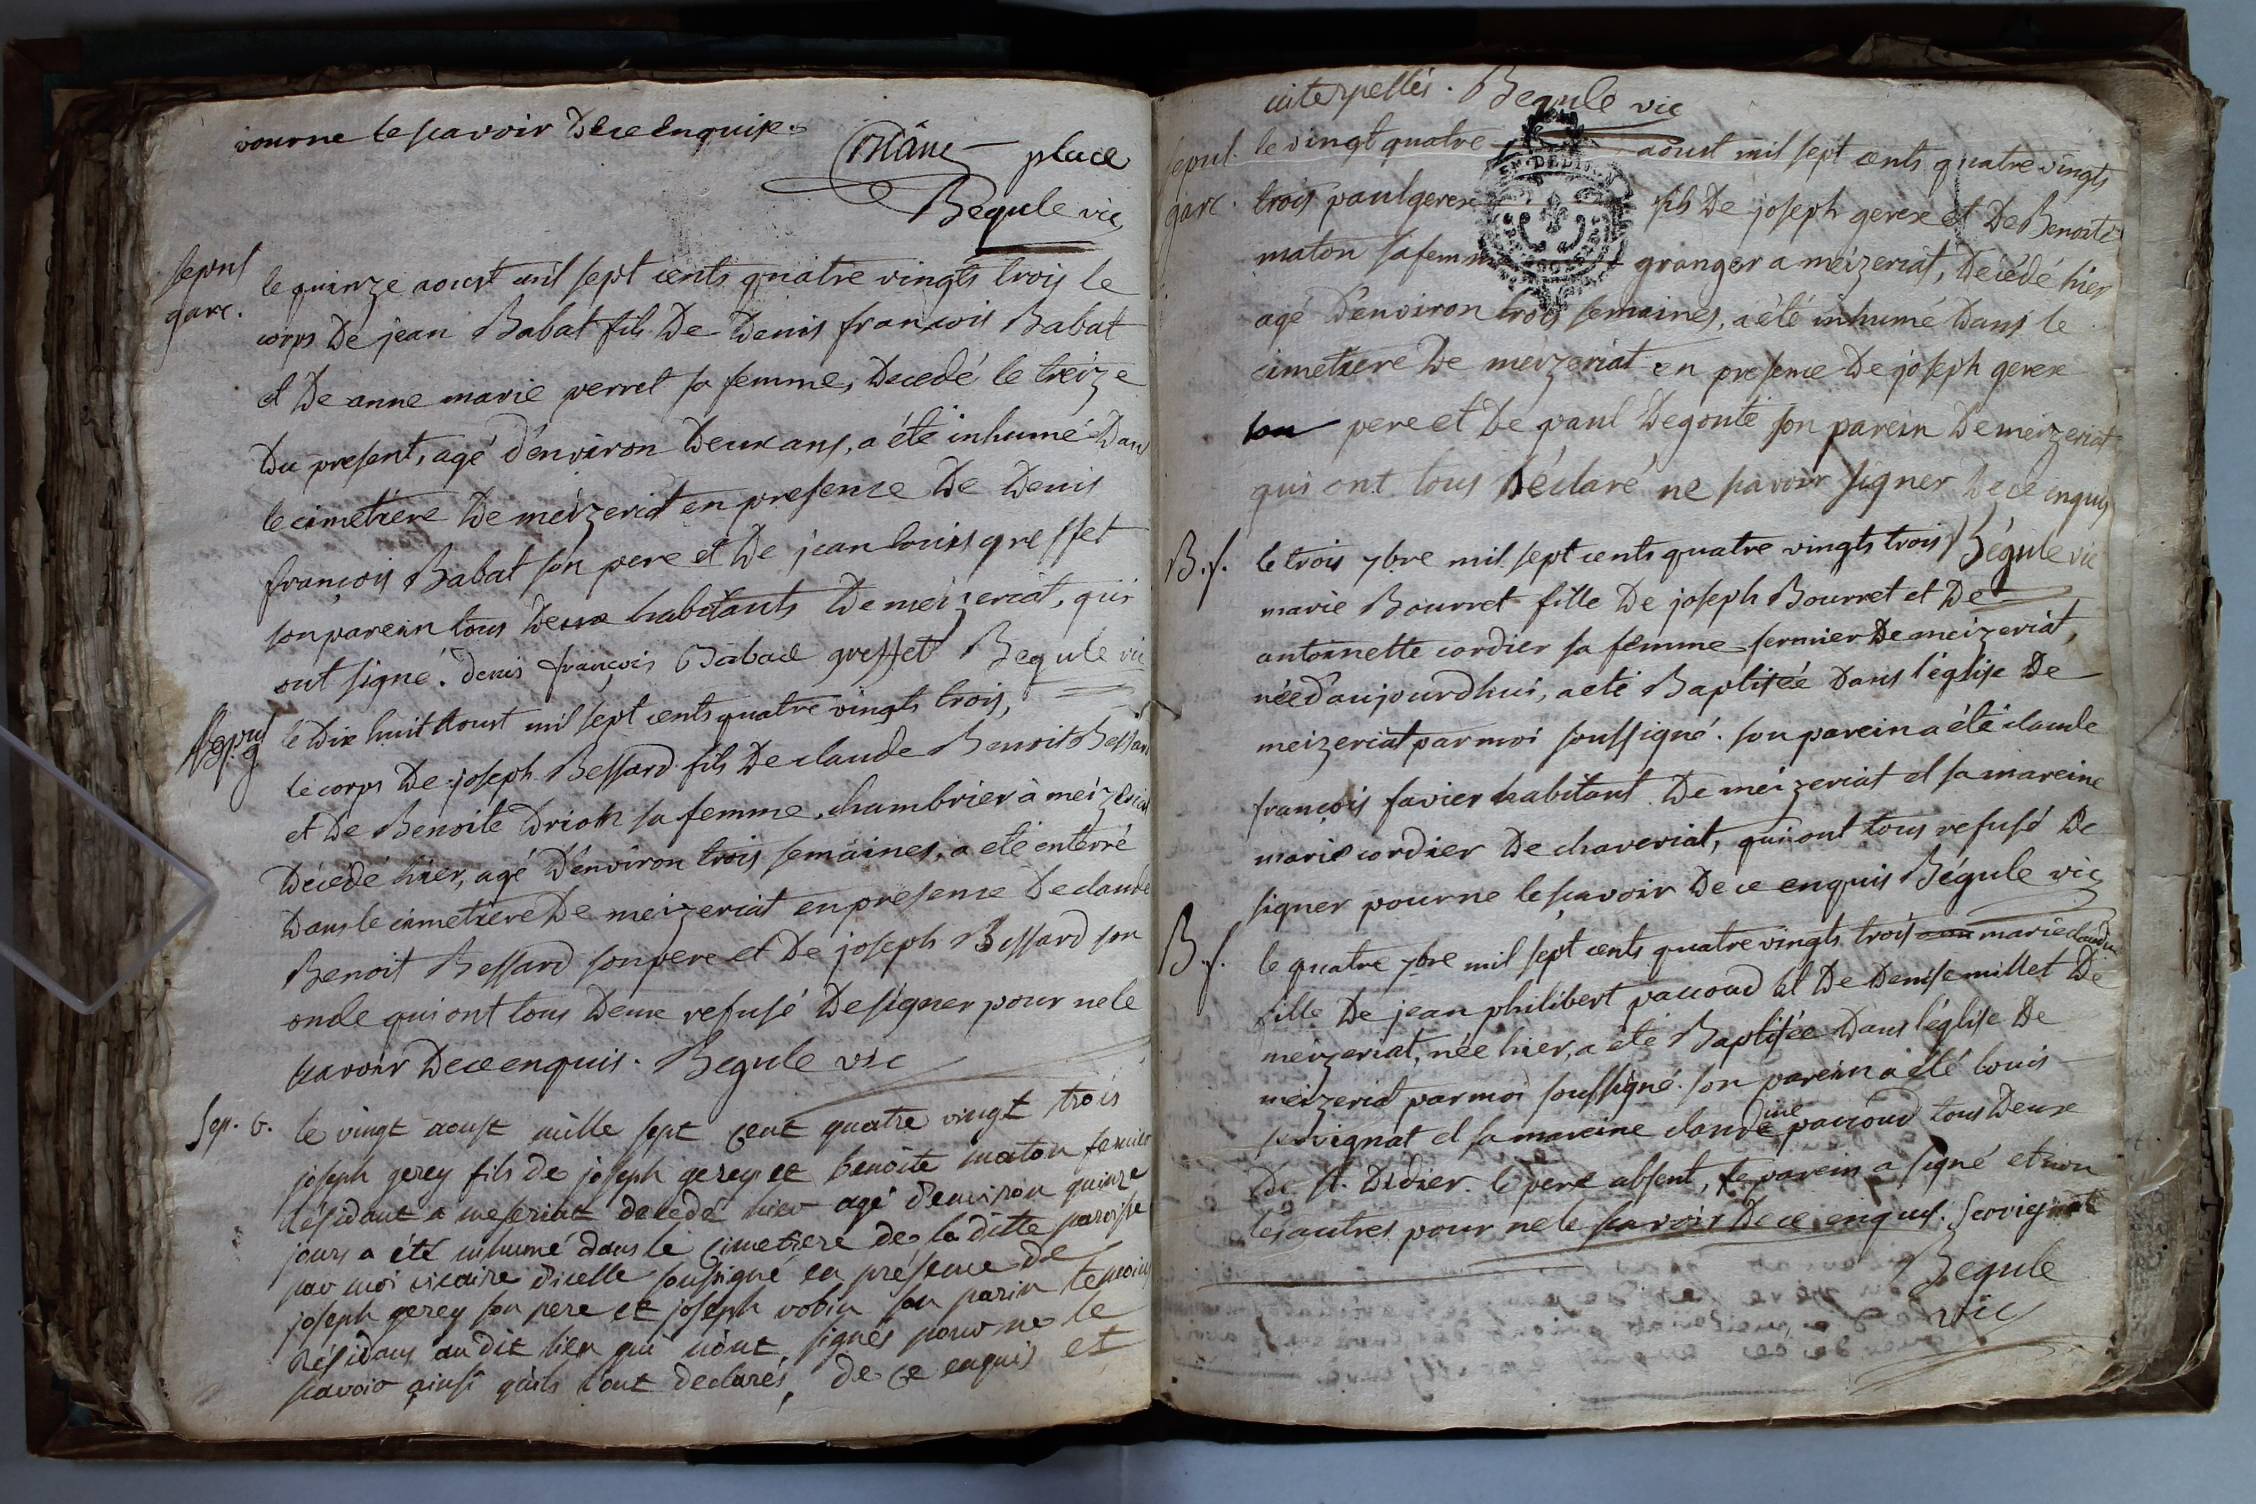 pour ne le scavoir de ce enquise.
place
Bégule vic
sepul
garc.
le quinze aoust mil sept cents quatre vingts trois le
corps de jean Babat fils de denis francois Babat
et de anne marie perret sa femme, decedé le treize
du present, agé d'environ deux ans, a été inhumé dans
le cimetière de meizeriat en presence de denis
françois Babat son pere et de jean louis greffet
son parein tous deux habitants de meizeriat, qui
ont signé. denis françois Babad greffet Begule vic
sepul
g
le dix huit aoust mil sept cents quatre vingts trois,
le corps de joseph Bessard fils de claude Benoit Bessard
et de Benoite drion sa femme, chambrier à meizeriat
décédé hier, agé d'environ trois semaines, a eté enterré
dans le cimetiere de meizeriat en presence de claude
Benoit Bessard son pere et de joseph Bessard son
oncle qui ont tous deux refusé de signer pour ne le
scavoir de ce enquis. Begule vic
Sep. G.
le vingt aoust mille sept cent quatre vingt trois
joseph gerey fils de joseph gerey et benoite maton
résidant a meseriat decedé hier agé d'environ quinze
jours a été inhumé dans le cimetiere de la ditte paroisse
par moi vicaire d'icelle soussigné en présence de
joseph gerey son pere et joseph robin son parin temoins
résidans au dit lieu qui n'ont signés pour ne le
scavoir ainsi qu'ils l'ont declarés, de ce enquis et
interpellés. Begule vic
sepul.
garc.
le vingt quatre aoust mil sept cents quatre vingts
trois paul gerex fils de joseph gerex et de Benoite
maton sa femme granger a meizeriat, decédé hier
agé d'environ trois semaines, a été inhumé dans le
cimetiere de meizeriat en presence de joseph gerex
son pere et de paul degoute son parein de meizeriat
qui ont tous déclaré ne scavoir signer de ce enquis
Bégule vic
B. f.
le trois 7bre mil sept cents quatre vingts trois
marie Bourret fille de joseph Bourret et de
antoinette cordier sa femme fermier de meizeriat,
née d'aujourdhui, a eté Baptisée dans l'église de
meizeriat par moi soussigné. son parein a été claude
françois favier habitant de meizeriat et sa mareine
marie cordier de chaveriat, qui ont tous refusé de
signer pour ne le scavoir de ce enquis Bégule vic
B. f.
le quatre 7bre mil sept cents quatre vingts trois marie claudine
fille de jean philibert paccoud et de denise millet de
meizeriat, née hier, a été Baptisée dans l'église de
meizeriat par moi soussigné. son parein a été louis
servignat et sa mareine claudine paccoud tous deux
de st. didier. le pere absent, le parein a signé et non
les autres pour ne le scavoir de ce enquis. Servignat
Begule
vic